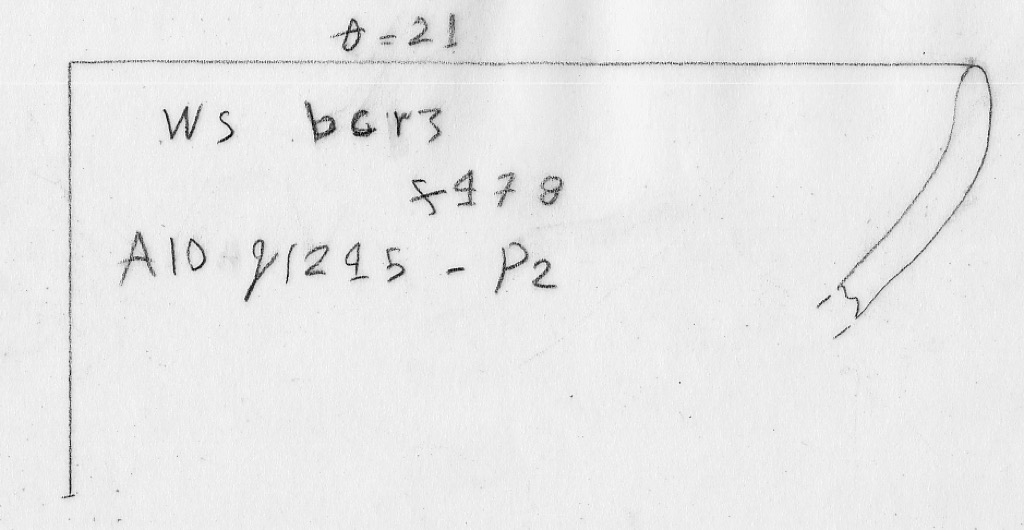 θ=21
WS bcr3
5478
A10 91245 - P2